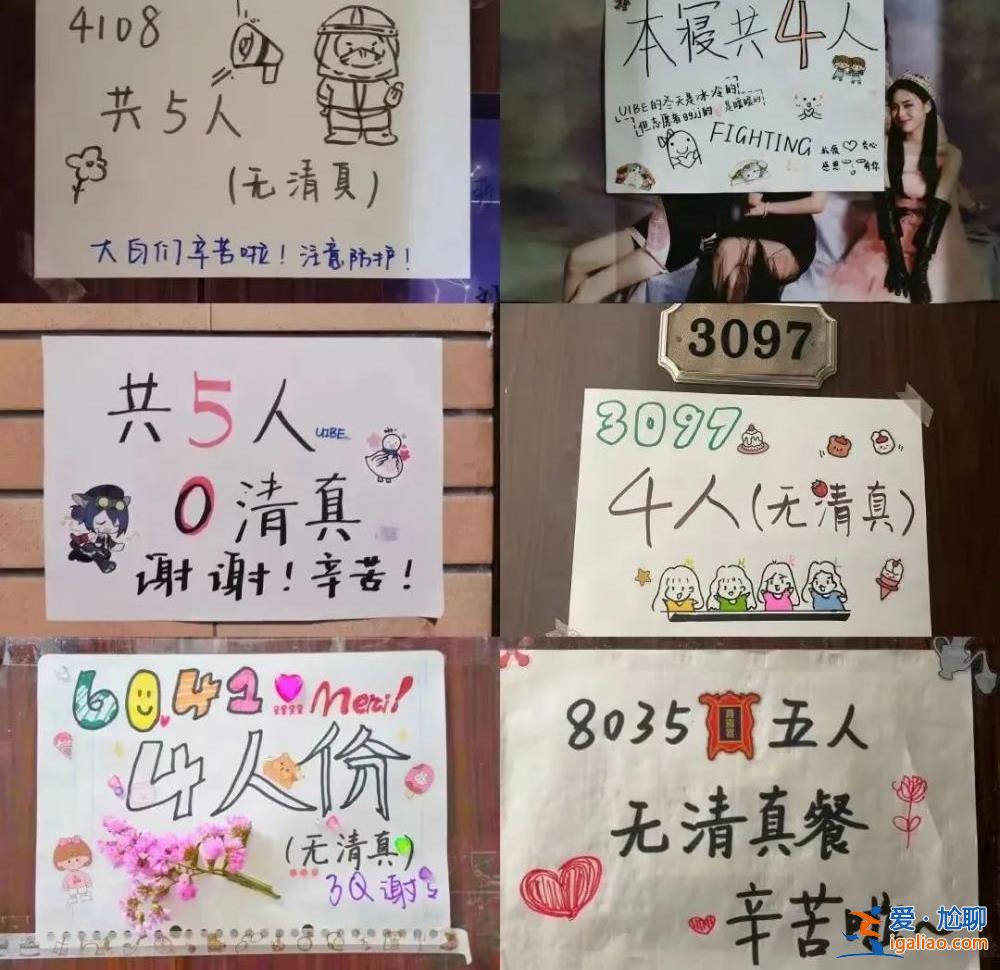 4108
共5人
(无清真)
大白们辛苦啦！注意防护！
本寝共4人
UIBE的冬天是冰冷的
但志愿者的心的是暖暖的！
FIGHTING
感恩 有你
共5人
UIBE
0清真
谢谢！辛苦！
3097
3097
4人(无清真)
6041 Merci!
4人份
(无清真)
3Q 谢
8035 五人
无清真餐
辛苦啦
爱·尬聊
igaliao.com